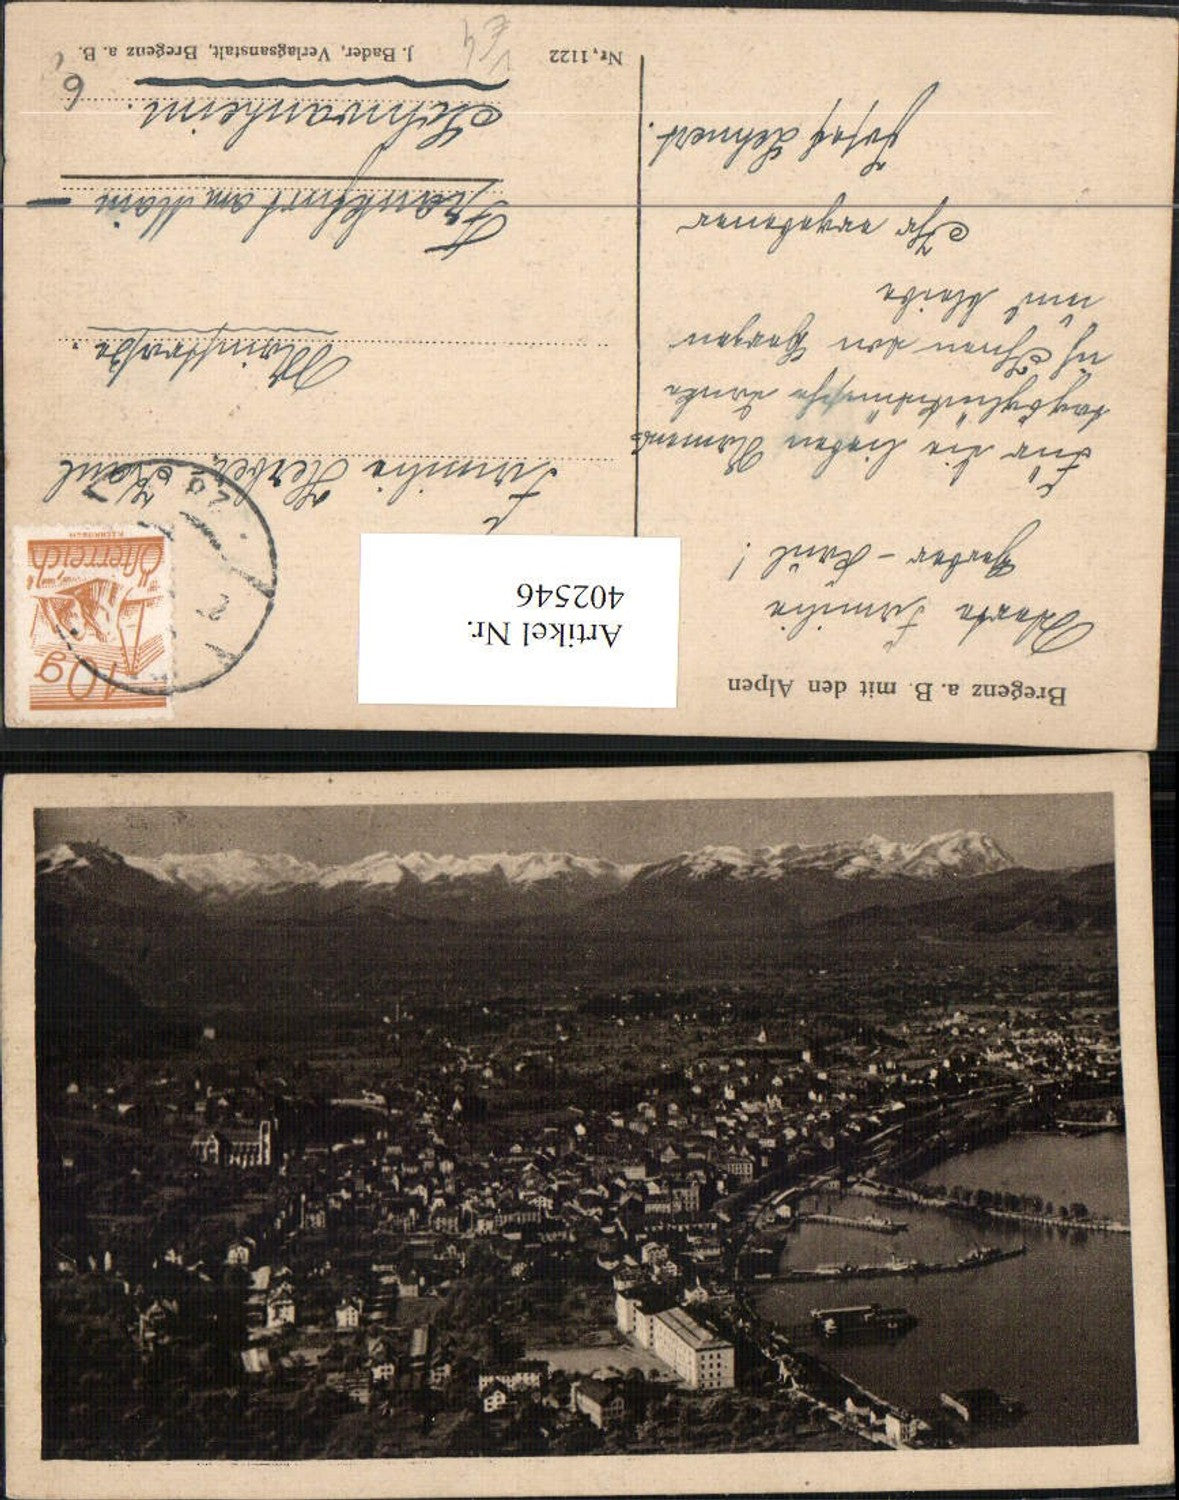 Bregenz a. B. mit den Alpen
Werte Familie
Herber-Kaul!
Für die lieben Namens-
tagsglückwünsche danke
ich Ihnen von Herzen
und bleibe
Ihr ergebener
Josef Lehnert.
Nr. 1122
J. Bader, Verlagsanstalt, Bregenz a. B.
Artikel Nr.
402546
10g
Österreich
Familie Herber-Kaul
Mainstraße.
Frankfurt am Main –
Schwanheim.
6